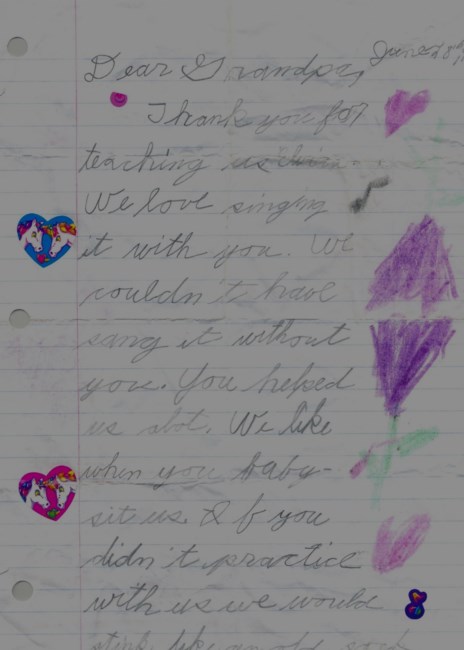 Dear Grandpa,
Thank you for
teaching us
We love singing
it with you. We
couldn't have
sang it without
you. You helped
us alot. We like
when you baby-
sit us. If you
didn't practice
with us we would
stink like an old